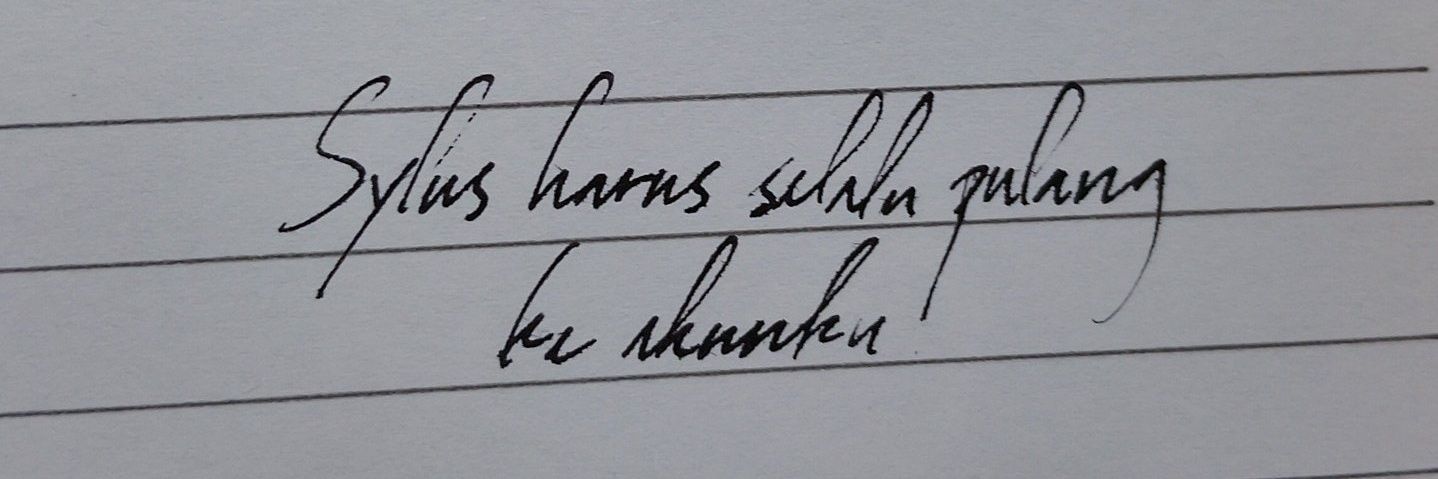 Sylus harus selalu pulang
ke akunku